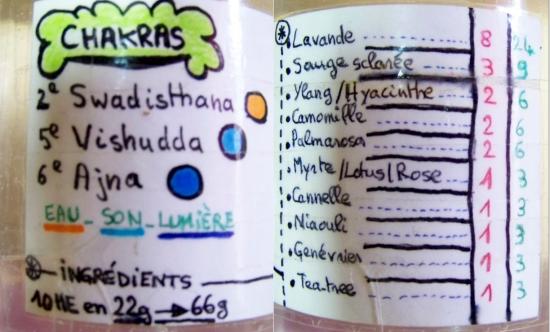 CHAKRAS
2e Swadisthana
5e Vishudda
6e Ajna
EAU - SON - LUMIÈRE
INGRÉDIENTS
10 HE en 22g → 66g
Lavande 8 24
Sauge sclarée 3 9
Ylang/Hyacinthe 2 6
Camomille 2 6
Palmarosa 2 6
Myrte/Lotus/Rose 1 3
Cannelle 1 3
Niaouli 1 3
Genévrier 1 3
Tea-tree 1 3